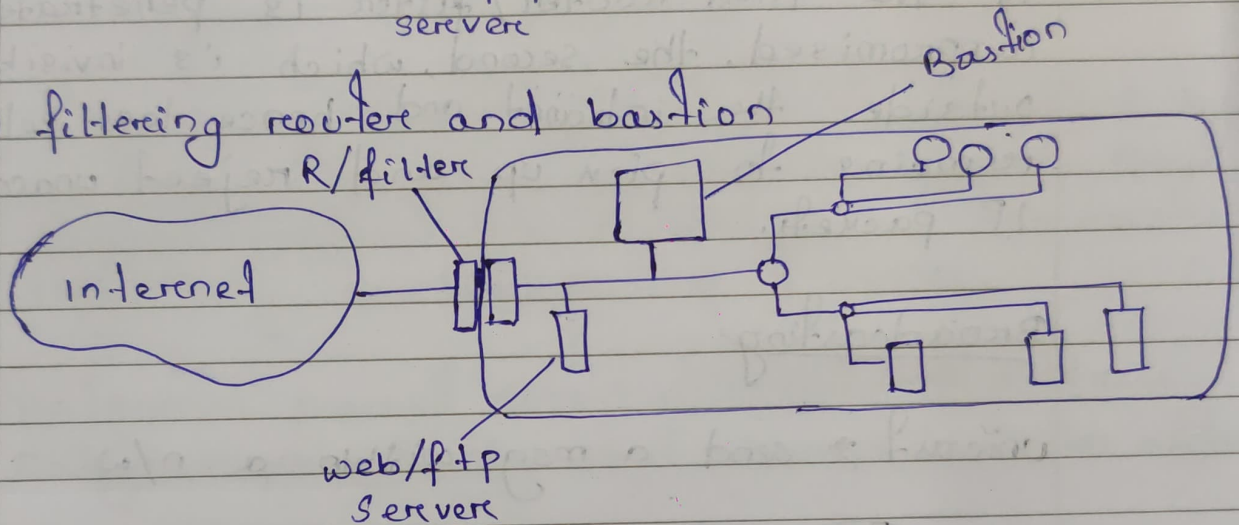 serevere
Bastion
filtereing reoutere and bastion
R/filtere
Interenet
web/ftp
Serevere